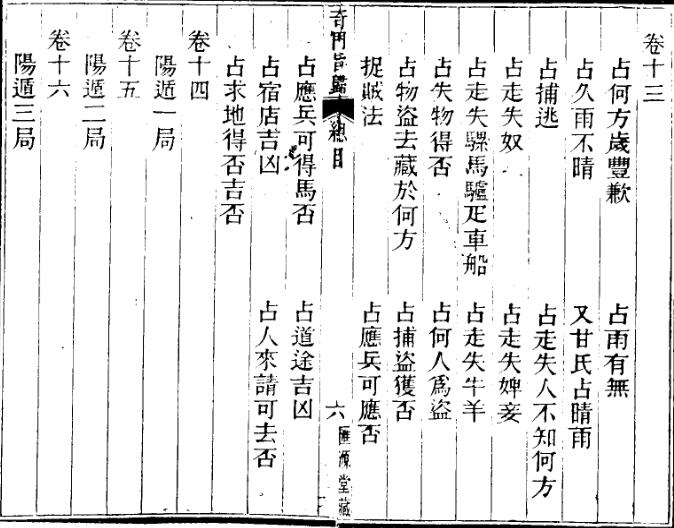 卷十三
占何方歲豐歉　占雨有無
占久雨不晴　又甘氏占晴雨
占捕逃　占走失人不知何方
占走失奴　占走失婢妾
占走失騾馬驢疋車船　占走失牛羊
占失物得否　占何人爲盜
占物盜去藏於何方　占捕盜獲否
捉賊法　占應兵可應否
奇門旨歸　總目　六　匯源堂藏
占應兵可得馬否　占道途吉凶
占宿店吉凶　占人來請可去否
占求地得否吉否
卷十四
陽遁一局
卷十五
陽遁二局
卷十六
陽遁三局